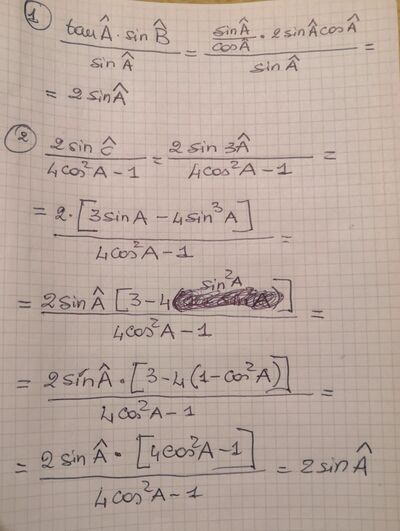 ① (tan Â · sin B̂) / sin Â = (sin Â / cos Â · 2 sin Â cos Â) / sin Â =
= 2 sin Â
② 2 sin Ĉ / (4cos²A − 1) = 2 sin 3Â / (4cos²A − 1) =
= 2 · [3 sin A − 4 sin³A] / (4cos²A − 1) =
= 2 sin Â [3 − 4 sin²A] / (4cos²A − 1) =
= 2 sin Â · [3 − 4(1 − cos²A)] / (4cos²A − 1) =
= 2 sin Â · [4cos²A − 1] / (4cos²A − 1) = 2 sin Â